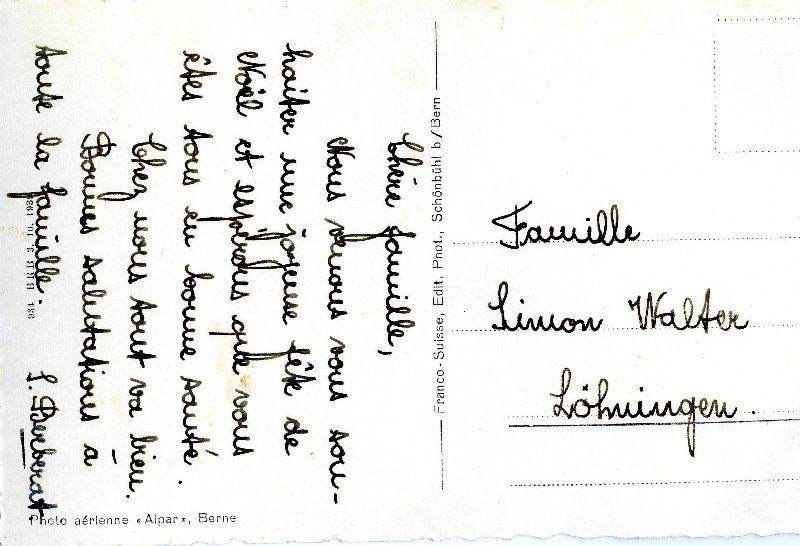 Chère famille,
Nous venons vous sou-
haiter une joyeuse fête de
Noël et espérons que vous
êtes tous en bonne santé.
Chez nous tout va bien.
Bonnes salutations à
toute la famille.
S. Berberat
Franco-Suisse, Edit. Phot., Schönbühl b/Bern
Famille
Simon Walter
Löhningen.
Photo aérienne «Alpar», Berne